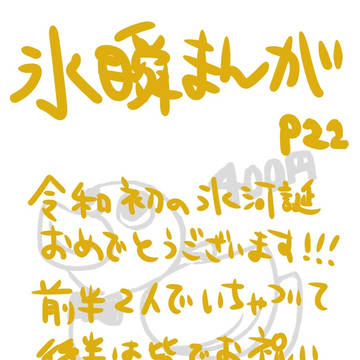 氷瞬まんが
P22
400円
令和初の氷河誕
おめでとうございます!!!
前半2人でいちゃついて
後半は皆でお祝い